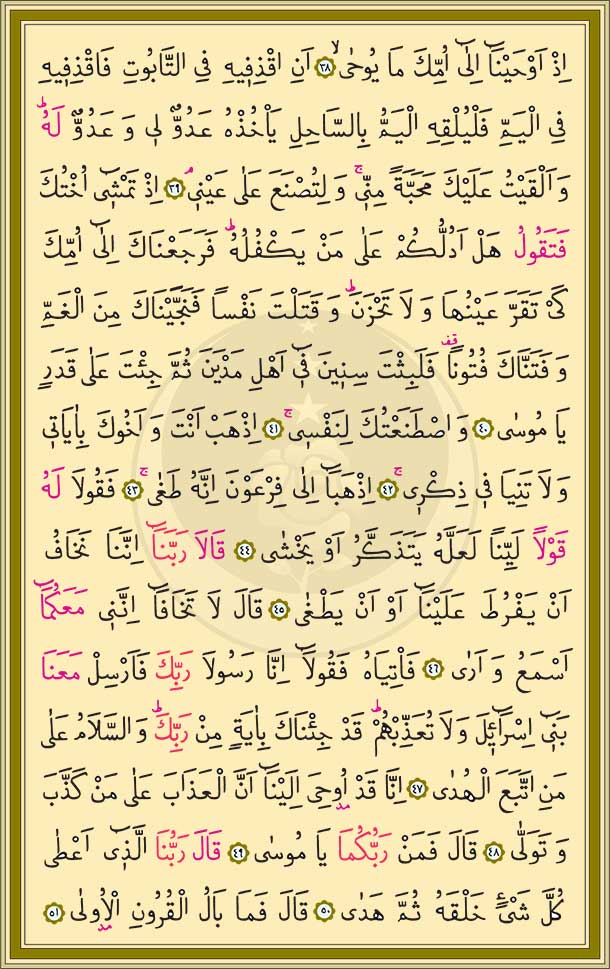 اِذْ اَوْحَيْنَٓا اِلٰٓى اُمِّكَ مَا يُوحٰىۙ ﴿٣٨﴾ اَنِ اقْذِف۪يهِ فِي التَّابُوتِ فَاقْذِف۪يهِ
فِي الْيَمِّ فَلْيُلْقِهِ الْيَمُّ بِالسَّاحِلِ يَأْخُذْهُ عَدُوٌّ ل۪ي وَ عَدُوٌّ لَهُۜ
وَ اَلْقَيْتُ عَلَيْكَ مَحَبَّةً مِنّ۪يۚ وَ لِتُصْنَعَ عَلٰى عَيْن۪يۢ ﴿٣٩﴾ اِذْ تَمْش۪ٓي اُخْتُكَ
فَتَقُولُ هَلْ اَدُلُّكُمْ عَلٰى مَنْ يَكْفُلُهُۜ فَرَجَعْنَاكَ اِلٰٓى اُمِّكَ
كَيْ تَقَرَّ عَيْنُهَا وَ لَا تَحْزَنَۜ وَ قَتَلْتَ نَفْسًا فَنَجَّيْنَاكَ مِنَ الْغَمِّ
وَ فَتَنَّاكَ فُتُونًا۠ فَلَبِثْتَ سِن۪ينَ ف۪ٓي اَهْلِ مَدْيَنَ ثُمَّ جِئْتَ عَلٰى قَدَرٍ
يَا مُوسٰى ﴿٤٠﴾ وَ اصْطَنَعْتُكَ لِنَفْس۪يۚ ﴿٤١﴾ اِذْهَبْ اَنْتَ وَ اَخُوكَ بِاٰيَات۪ي
وَ لَا تَنِيَا ف۪ي ذِكْر۪يۚ ﴿٤٢﴾ اِذْهَبَٓا اِلٰى فِرْعَوْنَ اِنَّهُ طَغٰىۚ ﴿٤٣﴾ فَقُولَا لَهُ
قَوْلًا لَيِّنًا لَعَلَّهُ يَتَذَكَّرُ اَوْ يَخْشٰى ﴿٤٤﴾ قَالَا رَبَّنَٓا اِنَّنَا نَخَافُ
اَنْ يَفْرُطَ عَلَيْنَٓا اَوْ اَنْ يَطْغٰى ﴿٤٥﴾ قَالَ لَا تَخَافَٓا اِنَّن۪ي مَعَكُمَٓا
اَسْمَعُ وَ اَرٰى ﴿٤٦﴾ فَأْتِيَاهُ فَقُولَٓا اِنَّا رَسُولَا رَبِّكَ فَاَرْسِلْ مَعَنَا
بَن۪ٓي اِسْرَٓائ۪لَ وَ لَا تُعَذِّبْهُمْۜ قَدْ جِئْنَاكَ بِاٰيَةٍ مِنْ رَبِّكَۜ وَ السَّلَامُ عَلٰى
مَنِ اتَّبَعَ الْهُدٰى ﴿٤٧﴾ اِنَّا قَدْ اُو۫حِيَ اِلَيْنَٓا اَنَّ الْعَذَابَ عَلٰى مَنْ كَذَّبَ
وَ تَوَلّٰى ﴿٤٨﴾ قَالَ فَمَنْ رَبُّكُمَا يَا مُوسٰى ﴿٤٩﴾ قَالَ رَبُّنَا الَّذ۪ٓي اَعْطٰى
كُلَّ شَيْءٍ خَلْقَهُ ثُمَّ هَدٰى ﴿٥٠﴾ قَالَ فَمَا بَالُ الْقُرُونِ الْاُو۫لٰى ﴿٥١﴾